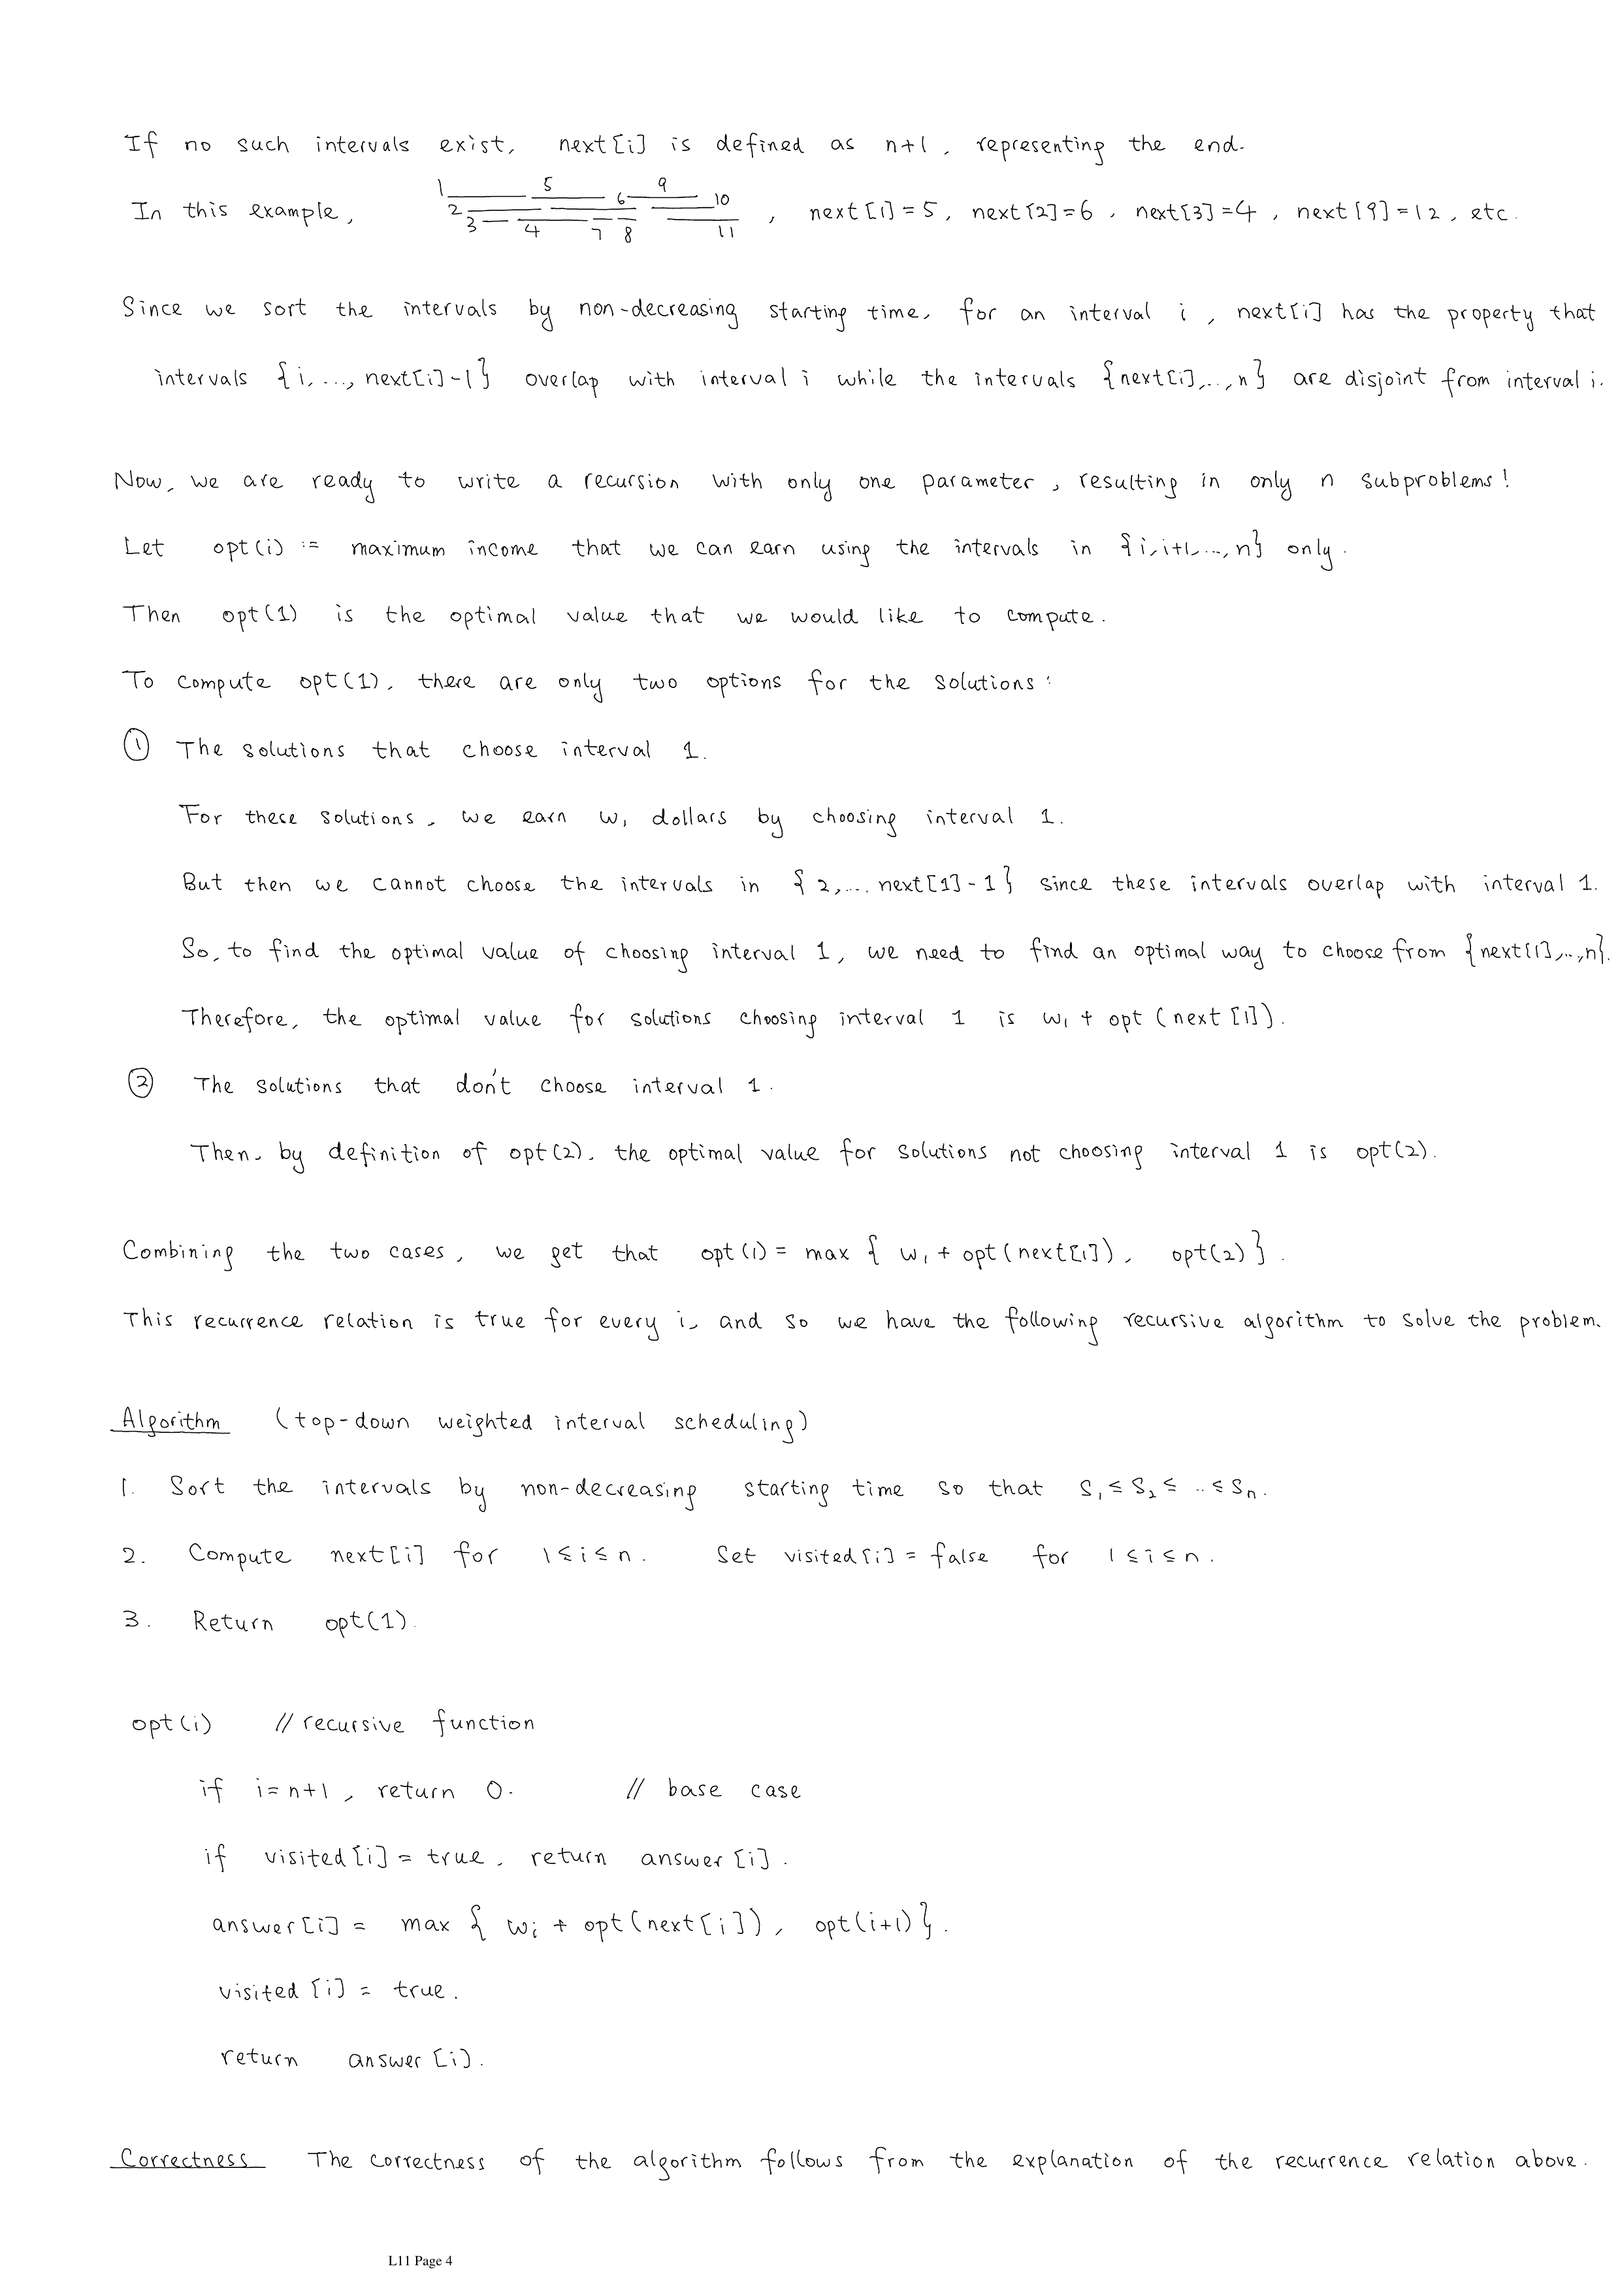 If no such intervals exist, next[i] is defined as n+1, representing the end.
In this example, 1 2 3 4 5 6 7 8 9 10 11 , next[1]=5, next[2]=6, next[3]=4, next[9]=12, etc.
Since we sort the intervals by non-decreasing starting time, for an interval i, next[i] has the property that
intervals {i,...,next[i]-1} overlap with interval i while the intervals {next[i],..,n} are disjoint from interval i.
Now, we are ready to write a recursion with only one parameter, resulting in only n subproblems!
Let opt(i) := maximum income that we can earn using the intervals in {i,i+1,...,n} only.
Then opt(1) is the optimal value that we would like to compute.
To compute opt(1), there are only two options for the solutions:
① The solutions that choose interval 1.
For these solutions, we earn w₁ dollars by choosing interval 1.
But then we cannot choose the intervals in {2,... next[1]-1} since these intervals overlap with interval 1.
So, to find the optimal value of choosing interval 1, we need to find an optimal way to choose from {next[1],..,n}.
Therefore, the optimal value for solutions choosing interval 1 is w₁ + opt(next[1]).
② The solutions that don't choose interval 1.
Then, by definition of opt(2), the optimal value for solutions not choosing interval 1 is opt(2).
Combining the two cases, we get that opt(1) = max { w₁ + opt(next[1]), opt(2) }.
This recurrence relation is true for every i, and so we have the following recursive algorithm to solve the problem.
Algorithm (top-down weighted interval scheduling)
1. Sort the intervals by non-decreasing starting time so that s₁ ≤ s₂ ≤ .. ≤ sₙ.
2. Compute next[i] for 1≤i≤n. Set visited[i] = false for 1≤i≤n.
3. Return opt(1).
opt(i) // recursive function
if i=n+1, return 0. // base case
if visited[i] = true, return answer[i].
answer[i] = max { wᵢ + opt(next[i]), opt(i+1) }.
visited[i] = true.
return answer[i].
Correctness The correctness of the algorithm follows from the explanation of the recurrence relation above.
L11 Page 4